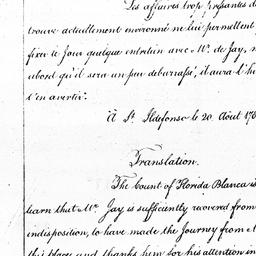 Les affaires trop pressantes do
trouve actuellement environné ne lui permettent
fixer le Jour quelque entretien avec Mr. de Jay, m
abord qu'il sera un peu débarrassé, il aura l'h
l'en avertir.
À St. Ildefonso le 20 Août 178
Translation.
The Count of Florida Blanca is
learn that Mr. Jay is sufficiently recovered from
indisposition, to have made the Journey from M
this place and thanks him for his attention in